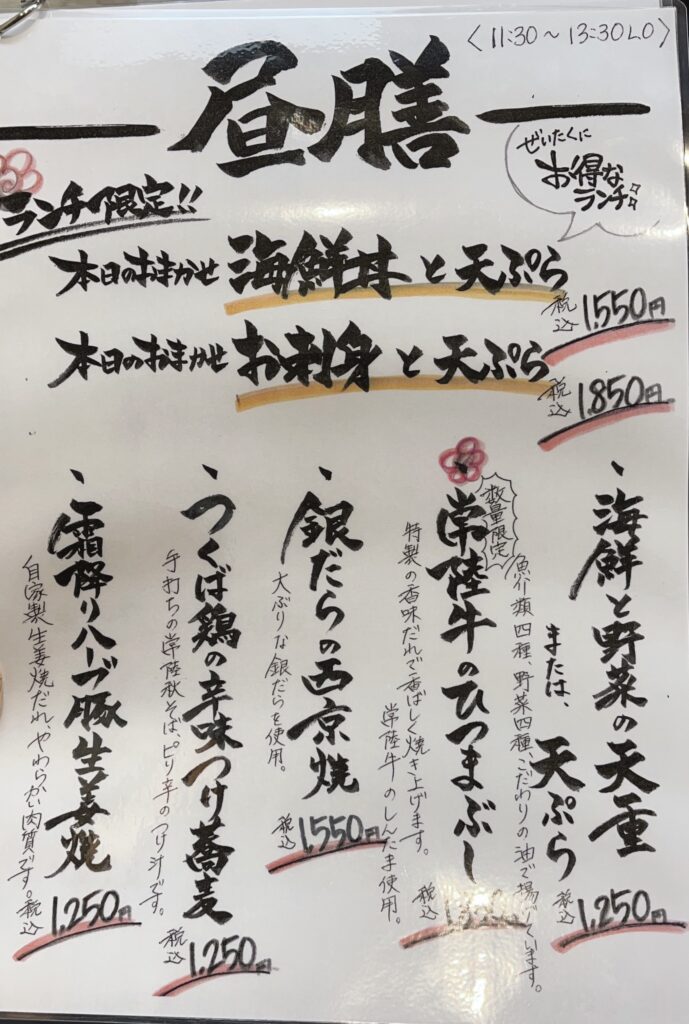 〈11:30～13:30LO〉
昼膳
ぜいたくに
お得な
ランチ
ランチ限定!!
本日のおまかせ 海鮮丼と天ぷら
税込 1,550円
本日のおまかせ お刺身と天ぷら
税込 1,850円
海鮮と野菜の天重
または、天ぷら
魚介類四種、野菜四種、こだわりの油で揚げています。
税込 1,250円
数量限定
常陸牛のひつまぶし
特製の香味だれで香ばしく焼き上げます。
常陸牛のしんたま使用。
税込
銀だらの西京焼
大ぶりな銀だらを使用。
税込 1,550円
つくば鶏の辛味つけ蕎麦
手打ちの常陸秋そば、ピリ辛のつけ汁です。
税込 1,250円
霜降りハーブ豚生姜焼
自家製生姜焼だれ、やわらかい肉質です。
税込 1,250円